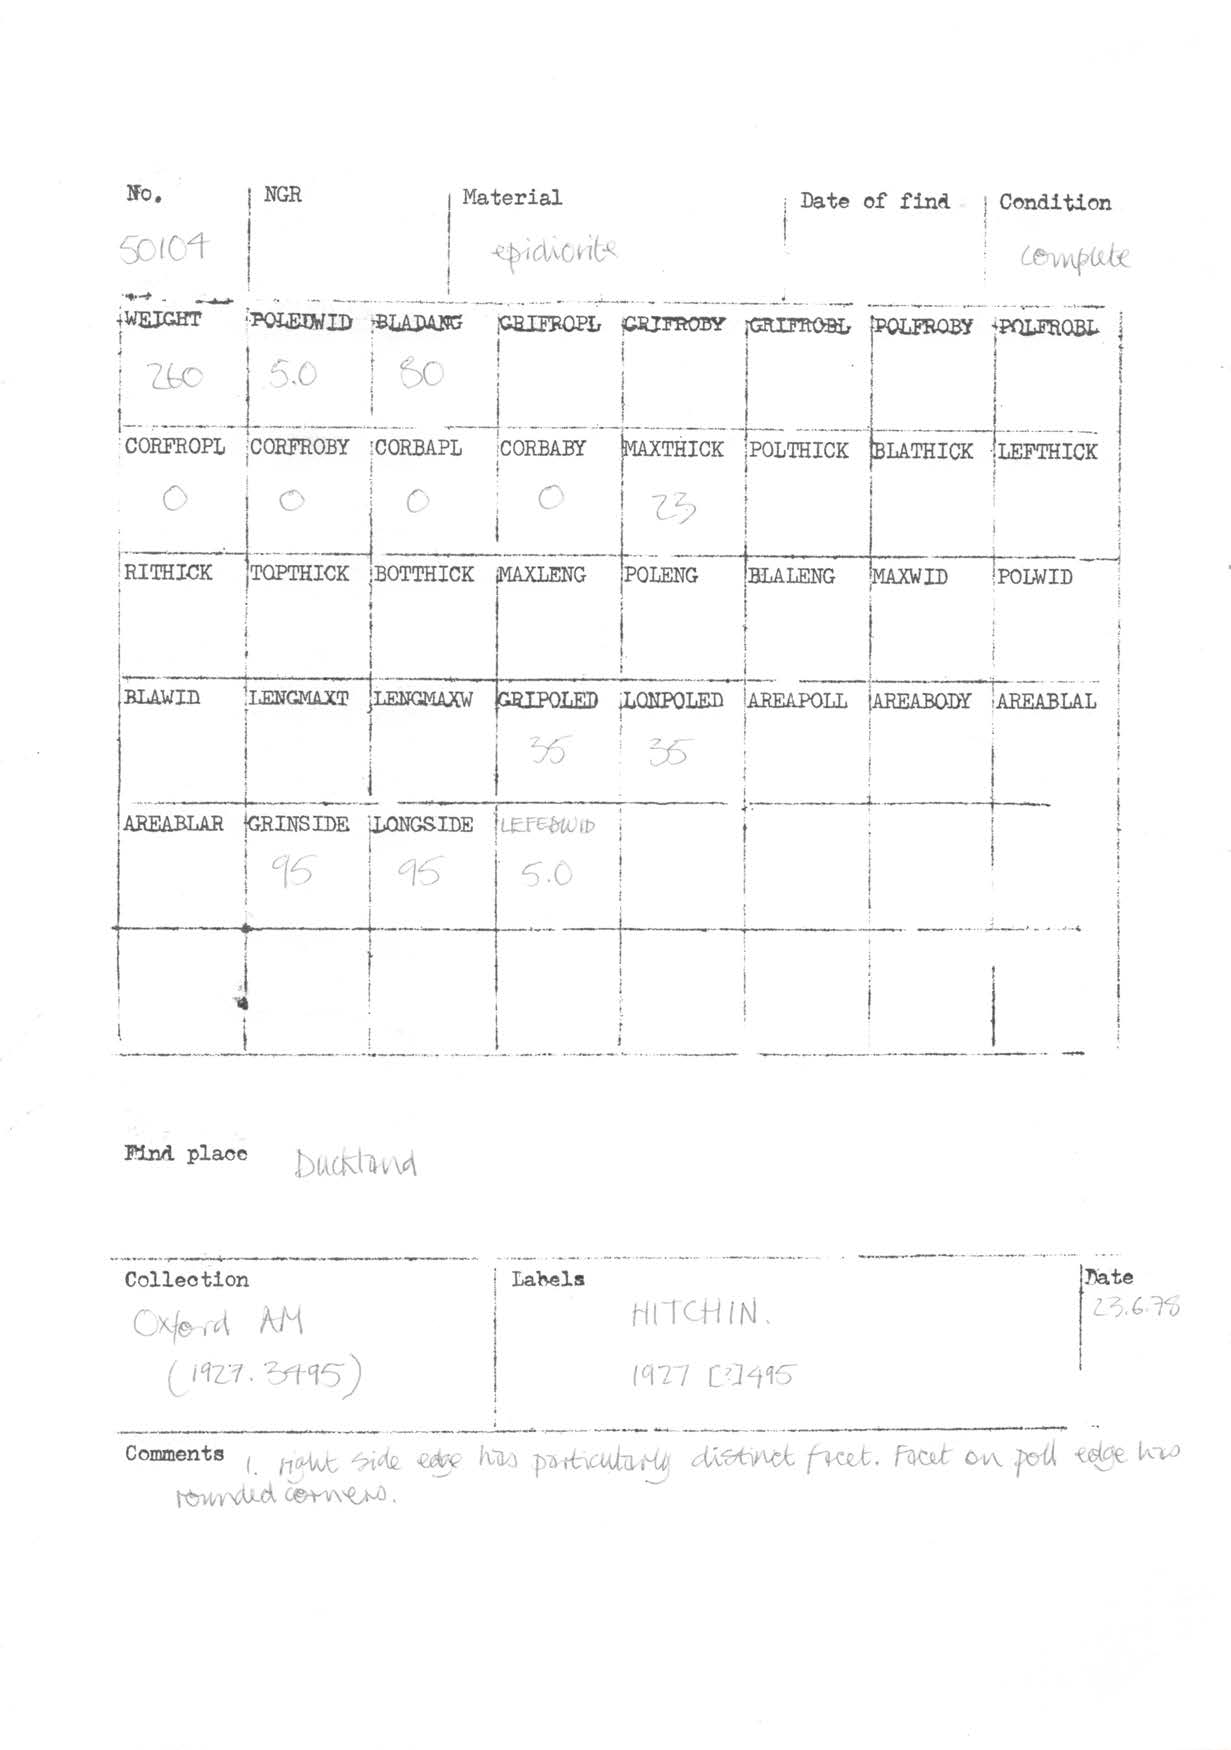 No. NGR Material Date of find Condition
50104 epidiorite complete
WEIGHT POLEDWID BLADANG GRIFROPL GRIFROBY GRIFROBL POLFROBY POLFROBL
260 5.0 80
CORFROPL CORFROBY CORBAPL CORBABY MAXTHICK POLTHICK BLATHICK LEFTHICK
0 0 0 0 23
RITHICK TOPTHICK BOTTHICK MAXLENG POLENG BLALENG MAXWID POLWID
BLAWID LENGMAXT LENGMAXW GRIPOLED LONPOLED AREAPOLL AREABODY AREABLAL
35 35
AREABLAR GRINSIDE LONGSIDE LEFEDWID
95 95 5.0
Find place Duckland
Collection Labels Date
Oxford AM HITCHIN. 23.6.78
(1927.3495) 1927 [?]495
Comments 1. right side edge has particularly distinct facet. Facet on poll edge has
rounded corners.